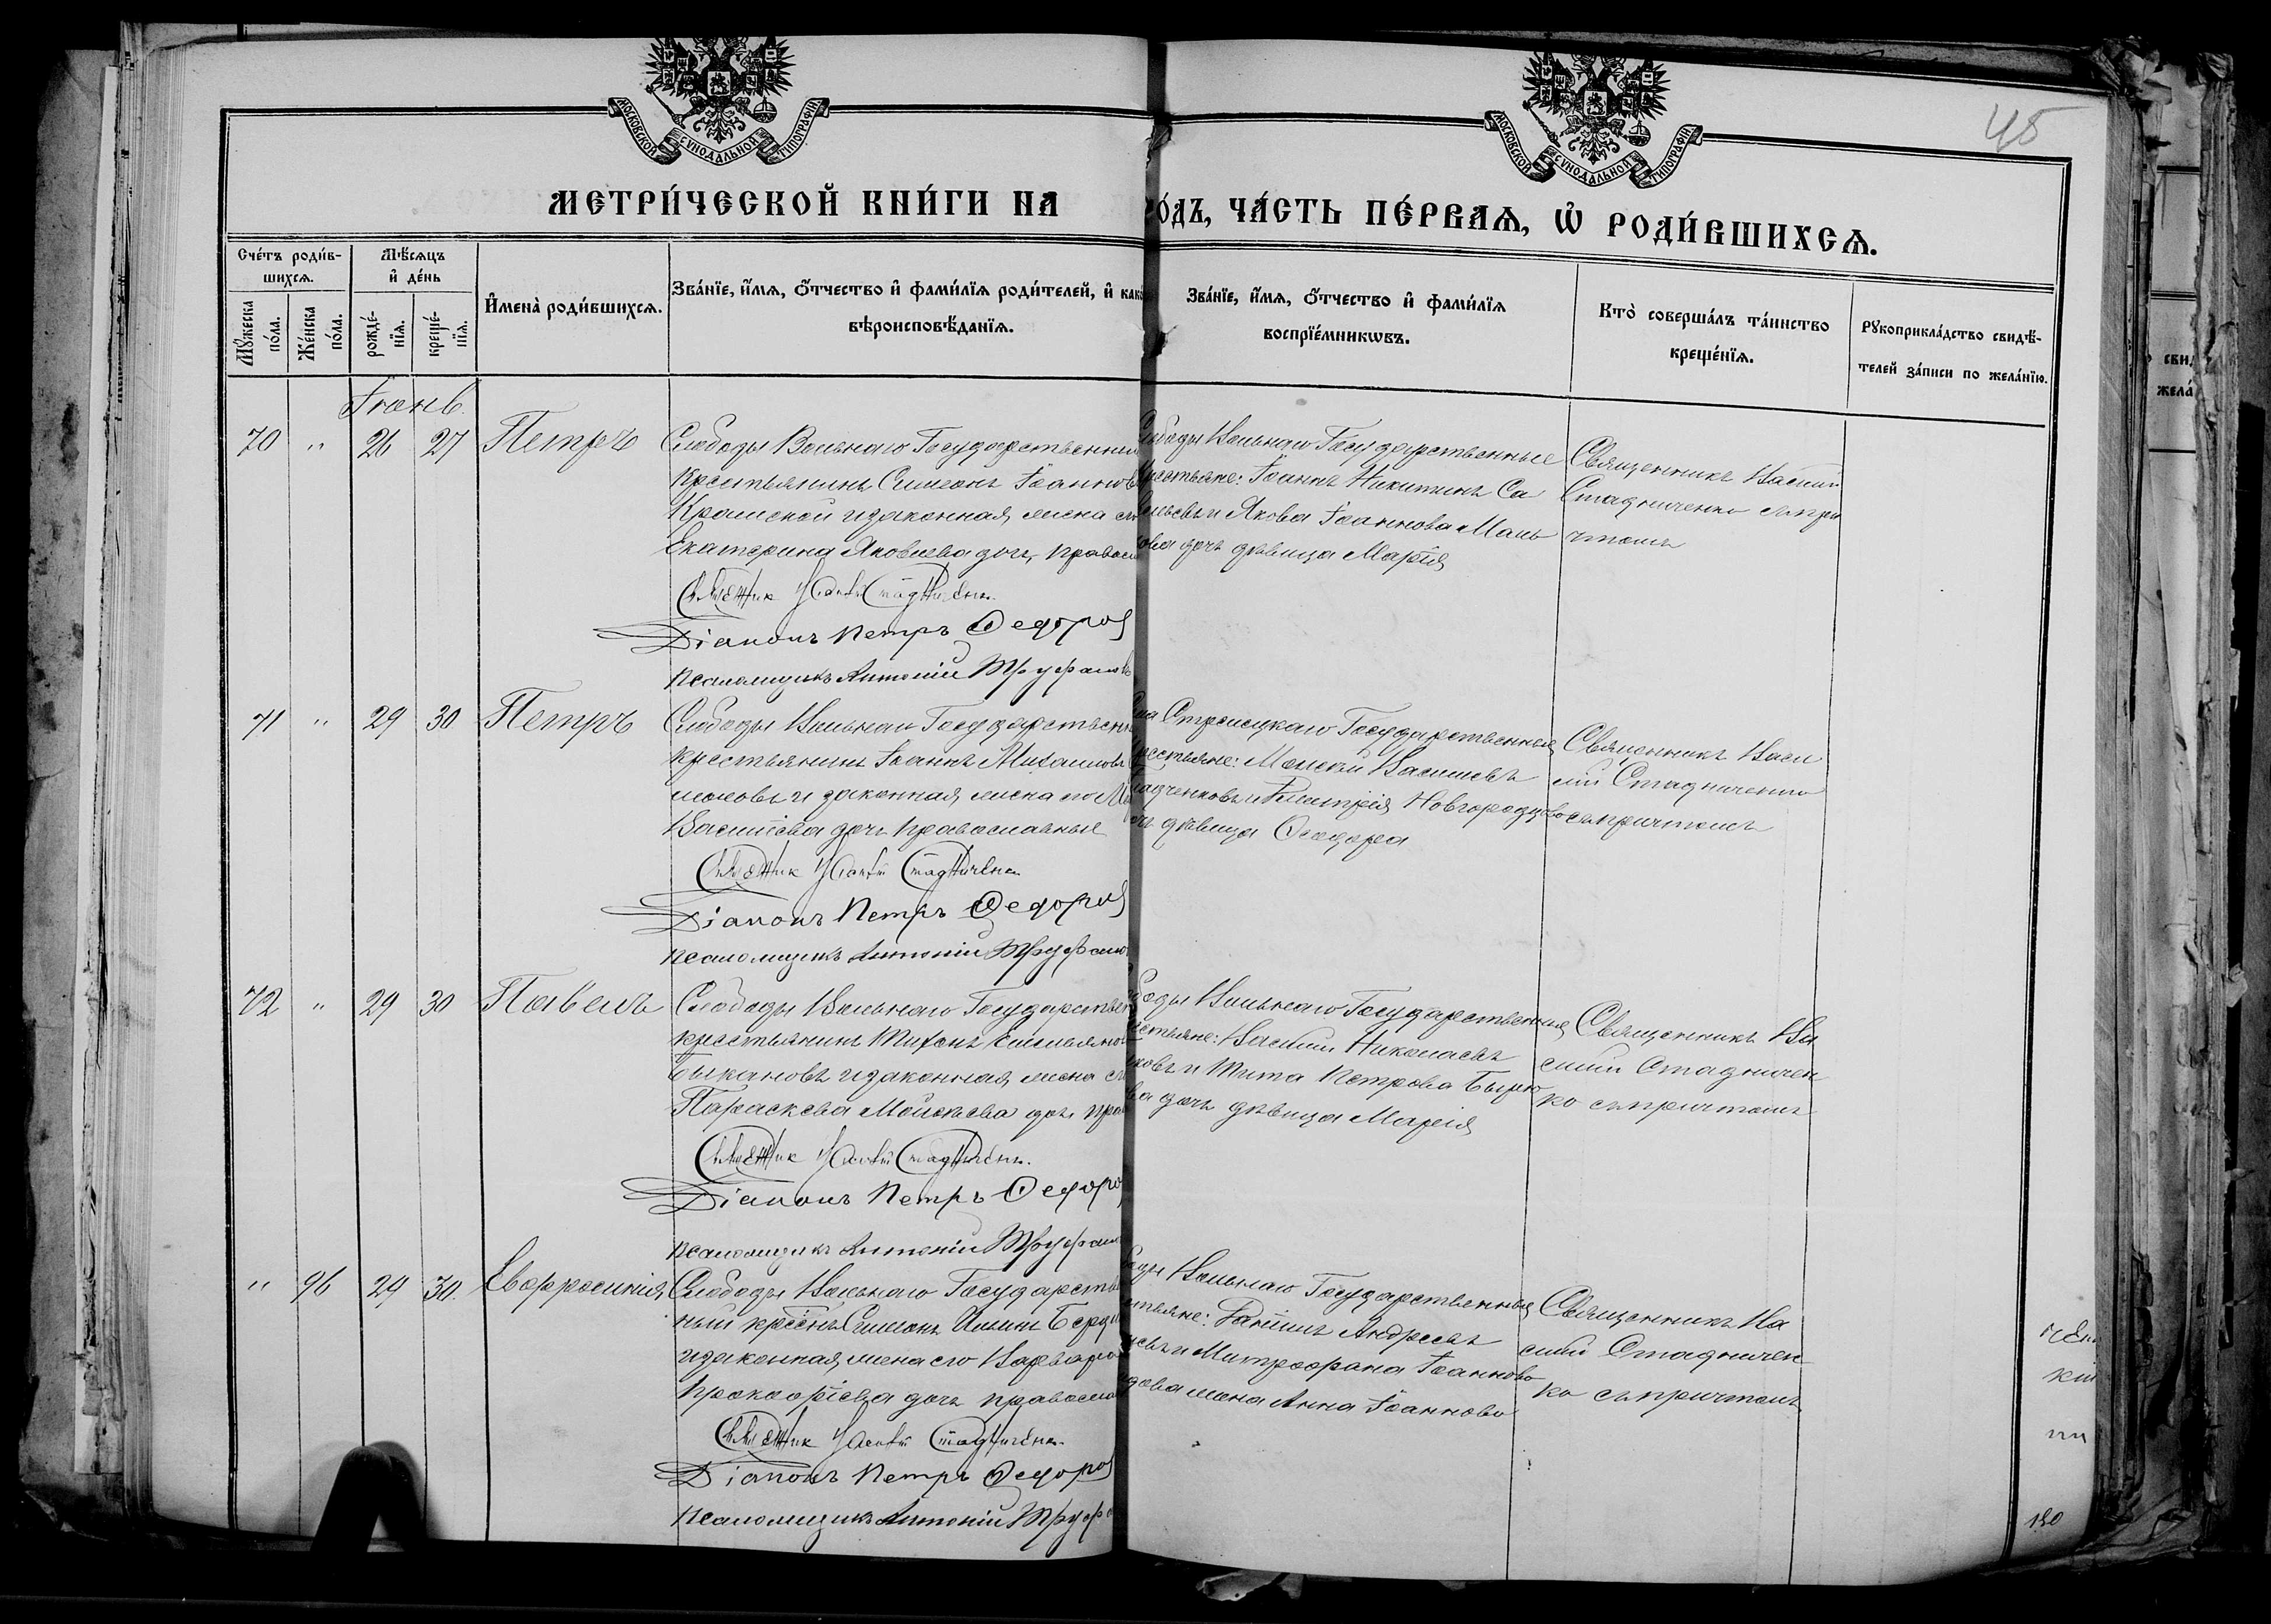 МОСКОВСКОЙ СѴНОДАЛЬНОЙ ТИПОГРАФІИ
МОСКОВСКОЙ СѴНОДАЛЬНОЙ ТИПОГРАФІИ
45
МЕТРИ́ЧЕСКОЙ КНИ́ГИ НА
О́ДЪ, ЧА́СТЬ ПЕ́РВАѦ, Ѡ РОДИ́ВШИХСѦ.
Сче́тъ роди́в-
шихсѧ.
Мѣ́сяцъ
и де́нь
Мꙋ́жеска по́ла.
Же́нска по́ла.
рожде́-нїѧ.
креще́-нїѧ.
Имена̀ роди́вшихсѧ.
Зва́нїе, и́мѧ, о́тчество и фами́лїѧ роди́телей, и како
вѣроисповѣ́данїѧ.
Зва́нїе, и́мѧ, о́тчество и фами́лїѧ
воспрїе́мникѡвъ.
Кто̀ соверша́лъ та́инство
креще́нїѧ.
Рꙋкоприкла́дство свидѣ́-
телей за́писи по жела́нїю.
Іюнь.
70 " 26 27 Петръ
Слободы Вольнаго Государственный
крестьянинъ Симеонъ Іоаннов
и законная жена его
Екатерина Яковлева дочь, правосл
Священник Василий Стадниченко
Діаконъ Петръ Федоров
Псаломщикъ Антоній Труфанов
Слободы Вольнаго Государственные
крестьяне: Іоаннъ Никитинъ Са
вельевъ и Якова Іоаннова Мань
кова дочь дѣвица Марія
Священникъ Василій
Стадниченко съ при
чтомъ
71 " 29 30 Петръ
Слободы Вольнаго Государственн
крестьянинъ Іоаннъ Михаиловъ
и законная жена его
Васильева дочь православные
Священник Василий Стадниченко
Діаконъ Петръ Федоров
Псаломщикъ Антоній Труфанов
Государственные
крестьяне: Васильевъ
Новгородцева
дочь дѣвица Ѳеодора
Священникъ Васи
лій Стадниченко
съ причтомъ
72 " 29 30 Павелъ
Слободы Вольнаго Государствен
крестьянинъ Тихонъ Емельянов
Быкановъ и законная жена его
Параскева Моисеева дочь прав
Священник Василий Стадниченко
Діаконъ Петръ Федоро
Псаломщикъ Антоній Труфан
боды Вольнаго Государственные
естьяне: Василій Николаевъ
ковъ и Тита Петрова Бырю
ва дочь дѣвица Марія
Священникъ Ва
силій Стадничен
ко съ причтомъ
" 96 29 30. Евфросинія
Слободы Вольнаго Государств
ный Симеонъ Ильинъ
и законная жена его Варвара
Прокофіева дочь правосла
Священник Василий Стадниченко
Діаконъ Петръ Федоров
Псаломщикъ Антоній Труф
оды Вольнаго Государственные
стьяне: Андреевъ
и Митрофана Іоаннова
жена Анна Іоаннова
Священникъ Ва
силій Стадничен
ко съ причтомъ